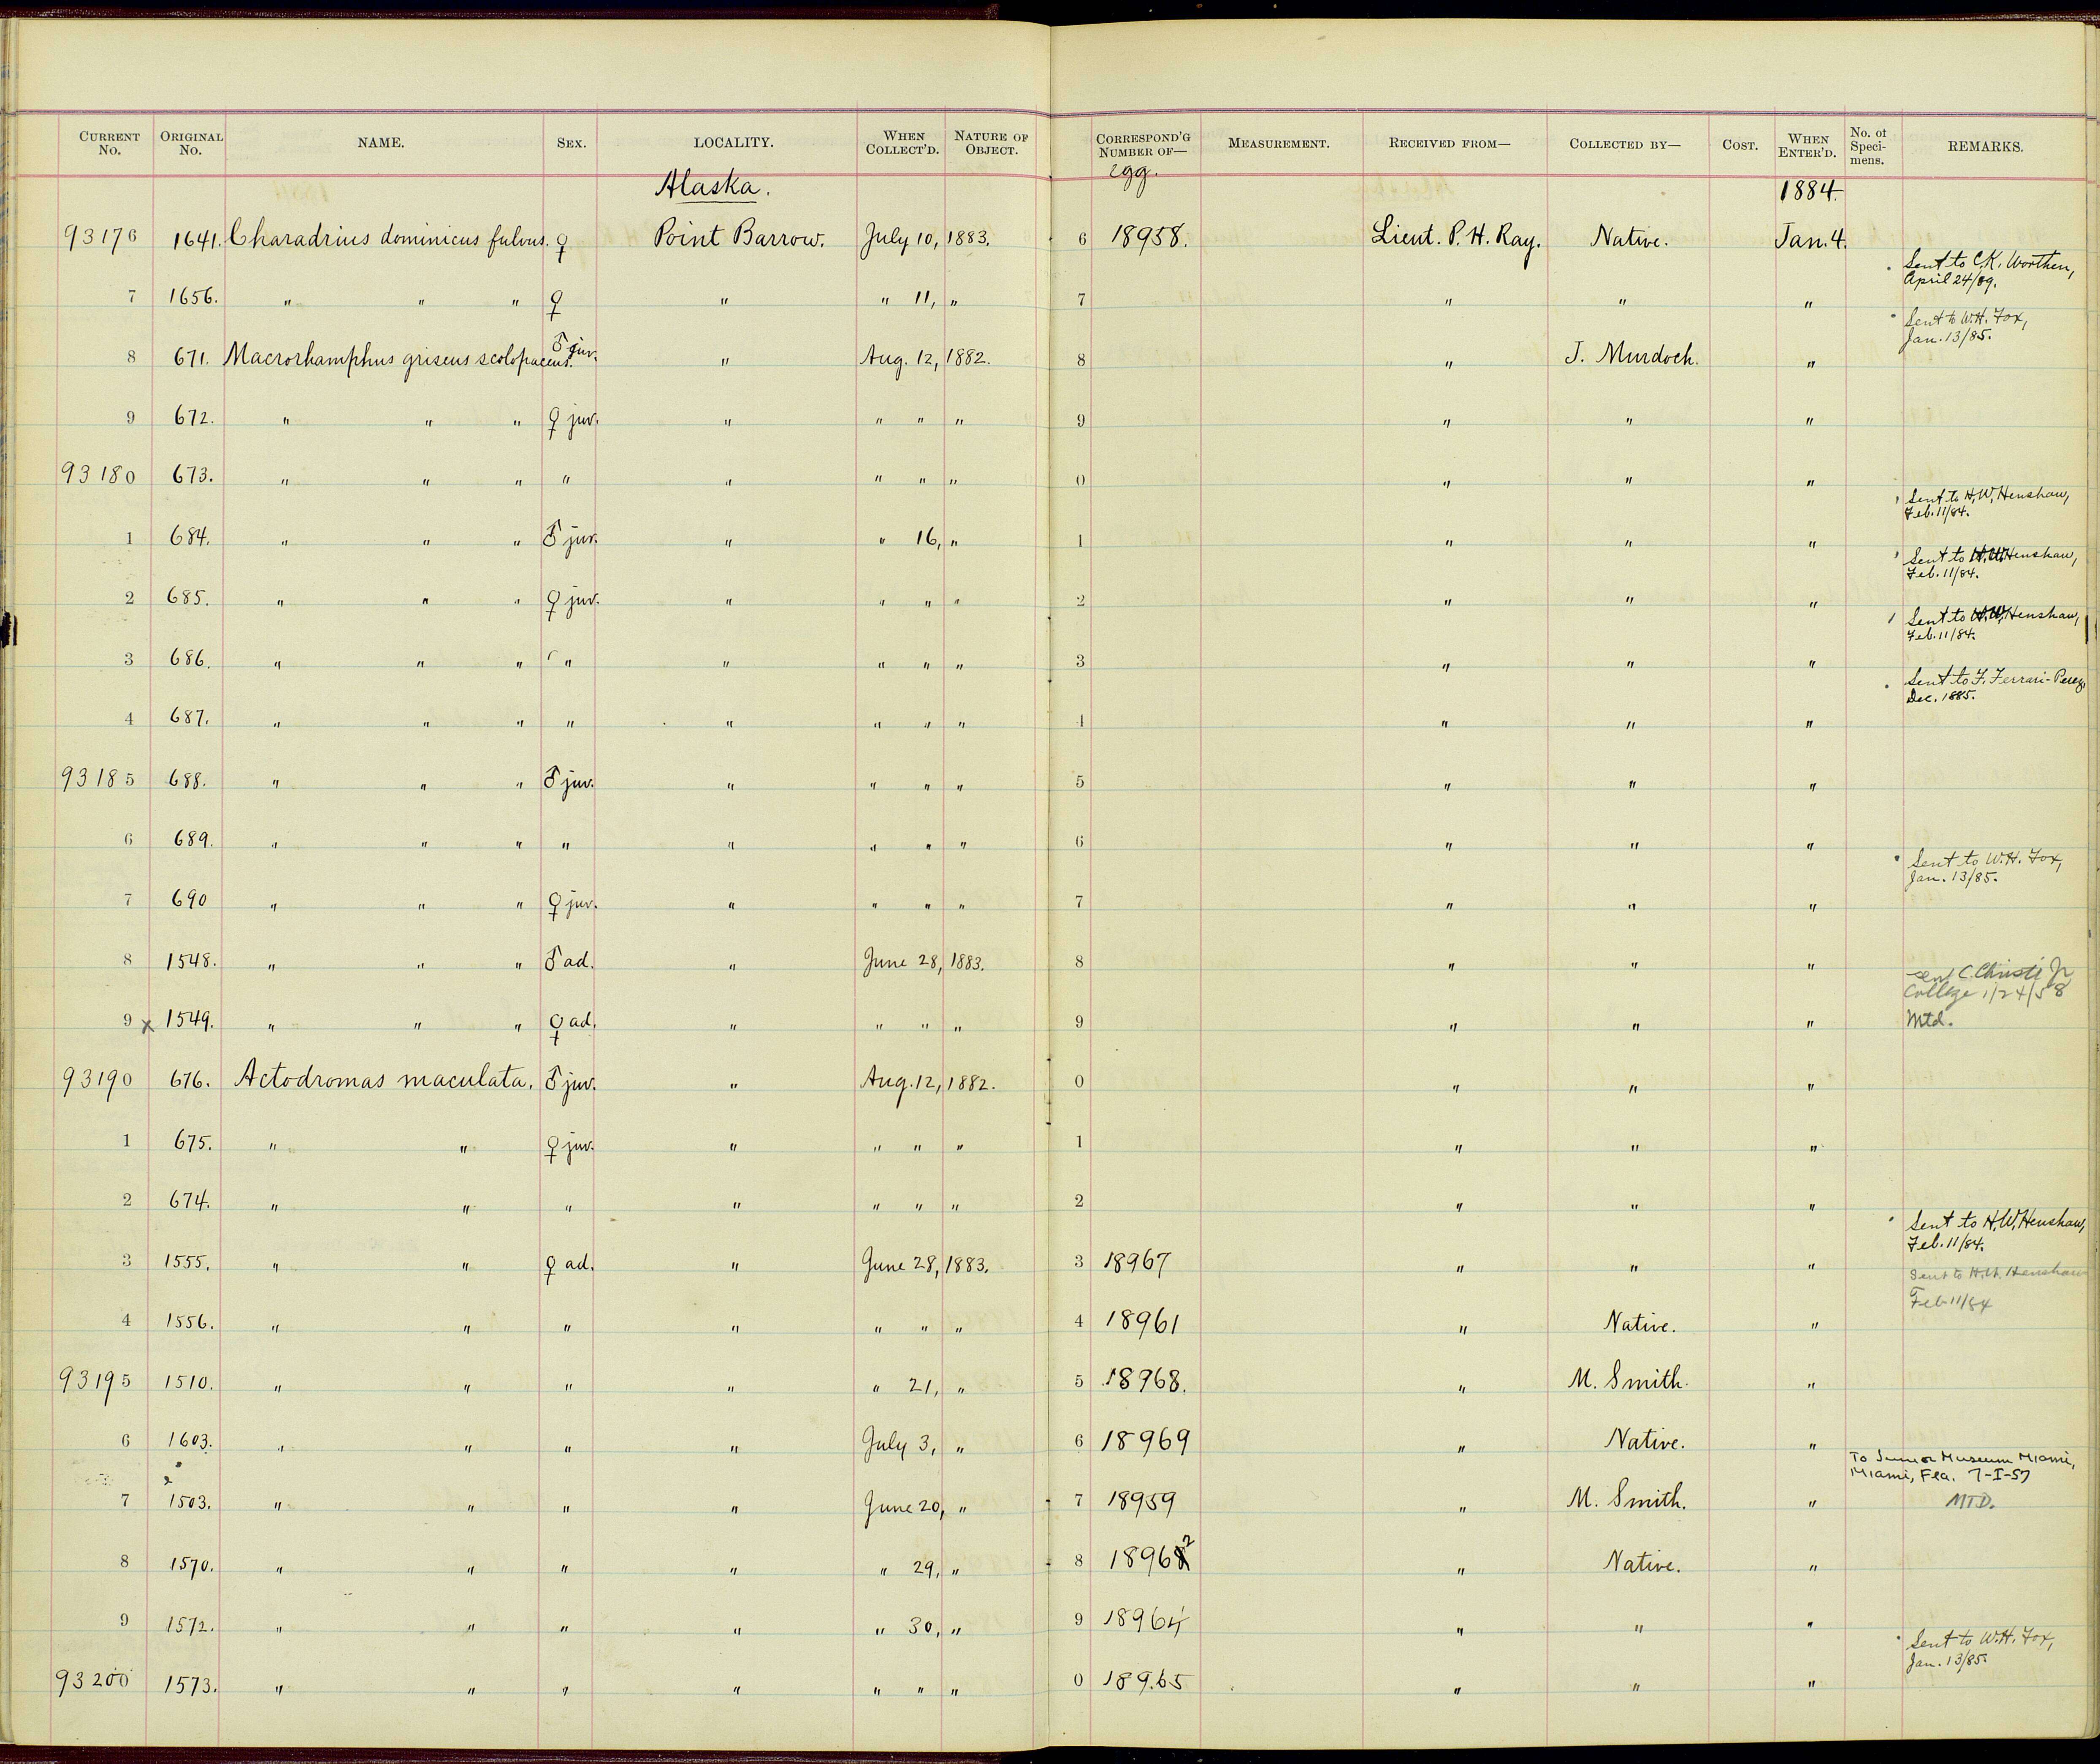 CURRENT No. ORIGINAL No. NAME. SEX. LOCALITY. WHEN COLLECT'D. NATURE OF OBJECT. CORRESPOND'G NUMBER OF— MEASUREMENT. RECEIVED FROM— COLLECTED BY— COST. WHEN ENTER'D. No. of Speci-mens. REMARKS.
egg.
Alaska. 1884.
93176 1641. Charadrius dominicus fulvus. ♀ Point Barrow. July 10, 1883. 6 18958. Lieut. P. H. Ray. Native. Jan. 4.
Sent to C.K. Worthen,
April 24/89.
7 1656. " " " ♀ " " 11, " 7 " " "
Sent to W.H. Fox,
Jan. 13/85.
8 671. Macrorhamphus griseus scolopaceus. ♂ juv. " Aug. 12, 1882. 8 " J. Murdoch. "
9 672. " " " ♀ juv. " " " " 9 " " "
93180 673. " " " " " " " " 0 " " "
Sent to H.W. Henshaw,
Feb. 11/84.
1 684. " " " ♂ juv. " " 16, " 1 " " "
Sent to H.W. Henshaw,
Feb. 11/84.
2 685. " " " ♀ juv. " " " " 2 " " "
Sent to H.W. Henshaw,
Feb. 11/84.
3 686. " " " " " " " " 3 " " "
Sent to F. Ferrari-Perez,
Dec. 1885.
4 687. " " " " " " " " 4 " " "
93185 688. " " " ♂ juv. " " " " 5 " " "
6 689. " " " " " " " " 6 " " "
Sent to W.H. Fox,
Jan. 13/85.
7 690 " " " ♀ juv. " " " " 7 " " "
8 1548. " " " ♂ ad. " June 28, 1883. 8 " " "
sent C. Christi Jr
College 1/24/58
9 x 1549. " " " ♀ ad. " " " " 9 " " " Mtd.
93190 676. Actodromas maculata. ♂ juv. " Aug. 12, 1882. 0 " " "
1 675. " " ♀ juv. " " " " 1 " " "
2 674. " " " " " " " 2 " " "
Sent to H.W. Henshaw,
Feb. 11/84.
3 1555. " " ♀ ad. " June 28, 1883. 3 18967 " " "
Sent to H.W. Henshaw
Feb 11/84
4 1556. " " " " " " " 4 18961 " Native. "
93195 1510. " " " " " 21, " 5 18968. " M. Smith. "
6 1603. " " " " July 3, " 6 18969 " Native. "
To Junior Museum Miami,
Miami, Fla. 7-I-57
7 1503. " " " " June 20, " 7 18959 " M. Smith. " MTD.
8 1570. " " " " " 29, " 8 18962 " Native. "
9 1572. " " " " " 30, " 9 18964 " " "
Sent to W.H. Fox,
Jan. 13/85.
93200 1573. " " " " " " " 0 18965 " " "